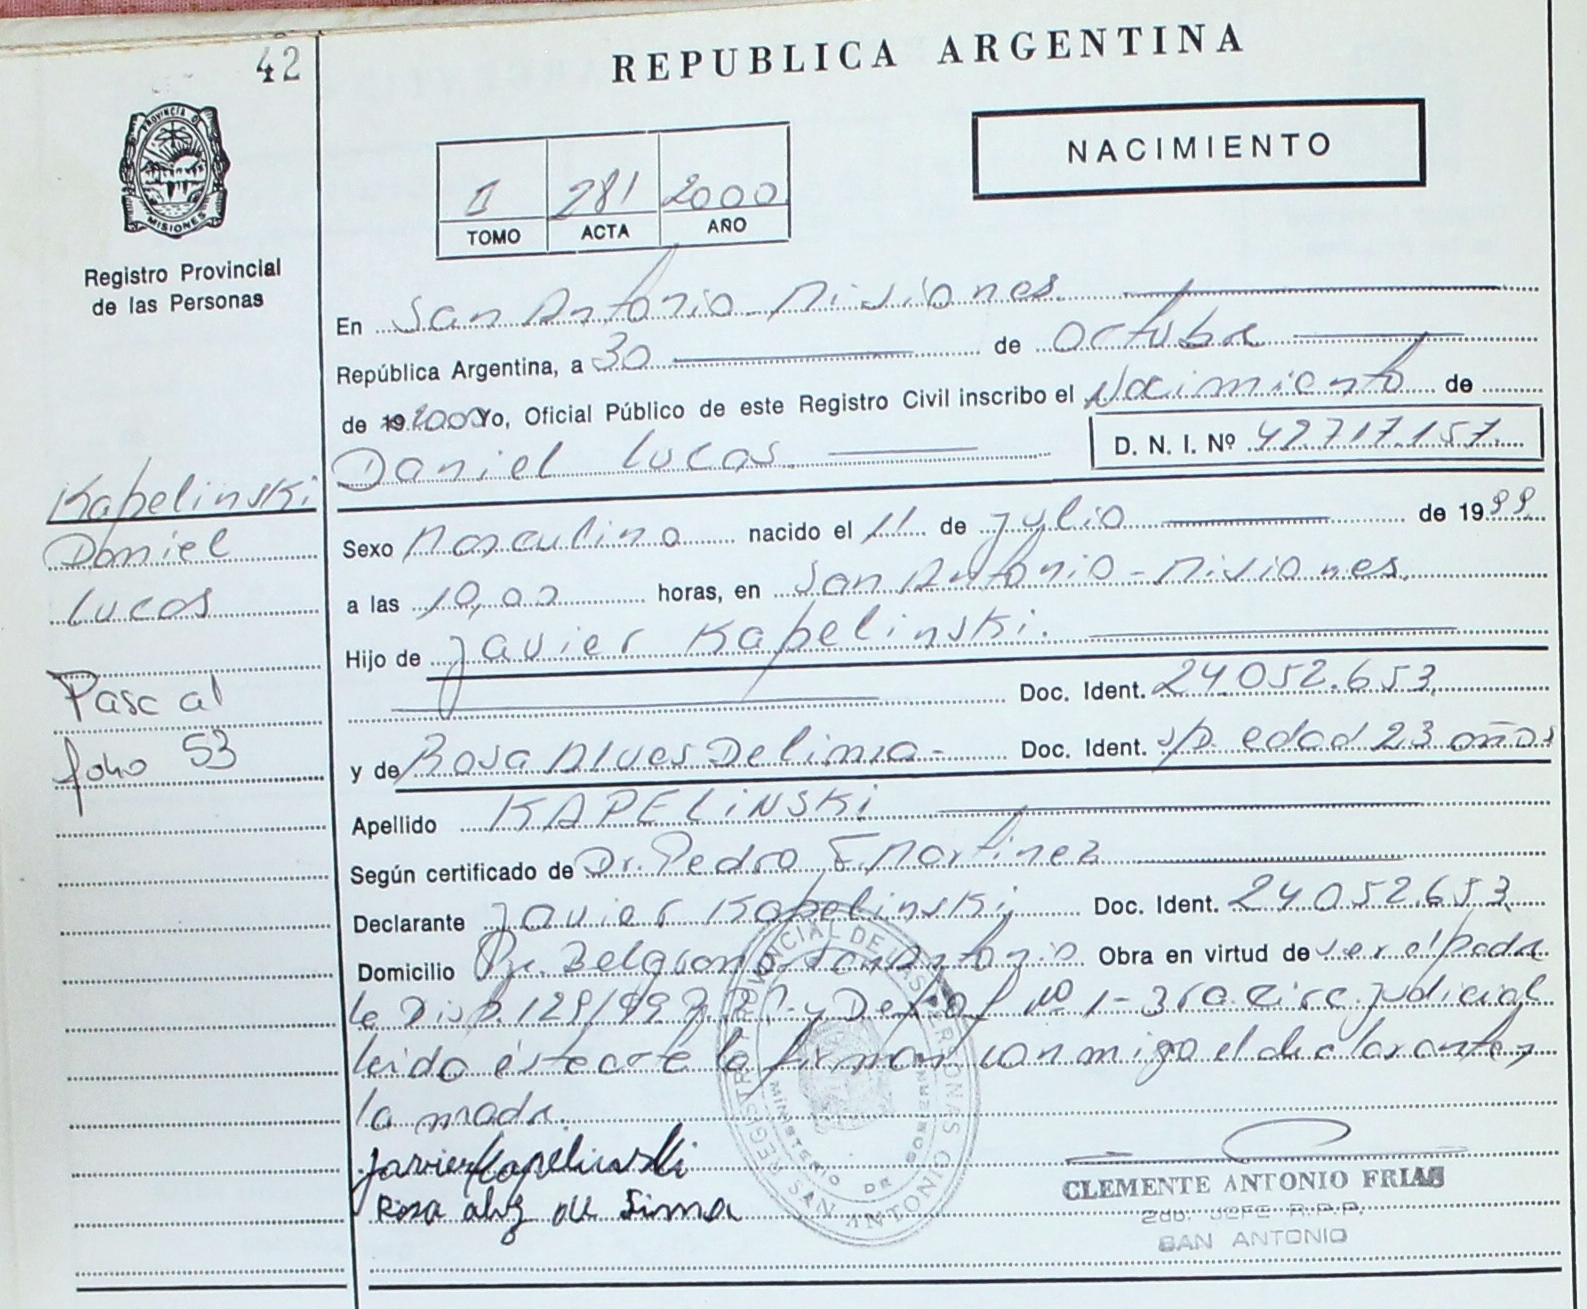 42
REPUBLICA ARGENTINA
PROVINCIA DE
MISIONES
Registro Provincial
de las Personas
NACIMIENTO
I 281 2000
TOMO ACTA AÑO
En San Antonio - Misiones
República Argentina, a 30 de octubre
de 19 2000 Yo, Oficial Público de este Registro Civil inscribo el Nacimiento de
Daniel Lucas D. N. I. Nº 42717.157
Kapelinski
Daniel
Lucas
Pascal
folio 53
Sexo Masculino nacido el 11 de Julio de 1999
a las 10,00 horas, en San Antonio - Misiones
Hijo de Javier Kapelinski.
Doc. Ident. 24.052.653
y de Rosa Alves De lima - Doc. Ident. s/D. edad 23 años
Apellido KAPELINSKI
Según certificado de Dr. Pedro E. Martinez
Declarante Javier Kapelinski Doc. Ident. 24052.653
Domicilio Belgrano San Antonio Obra en virtud de ser el padre
le Disp. 129/99 y Nº 1 - 3ra circ. judicial
leido éste acta la firman conmigo el declarante y
la madre.
Javier Kapelinski
Rosa de Lima
REGISTRO PROVINCIAL DE LAS PERSONAS
MINISTERIO DE GOBIERNO
SAN ANTONIO
CLEMENTE ANTONIO FRIAS
2do. JEFE R.P.P.
SAN ANTONIO